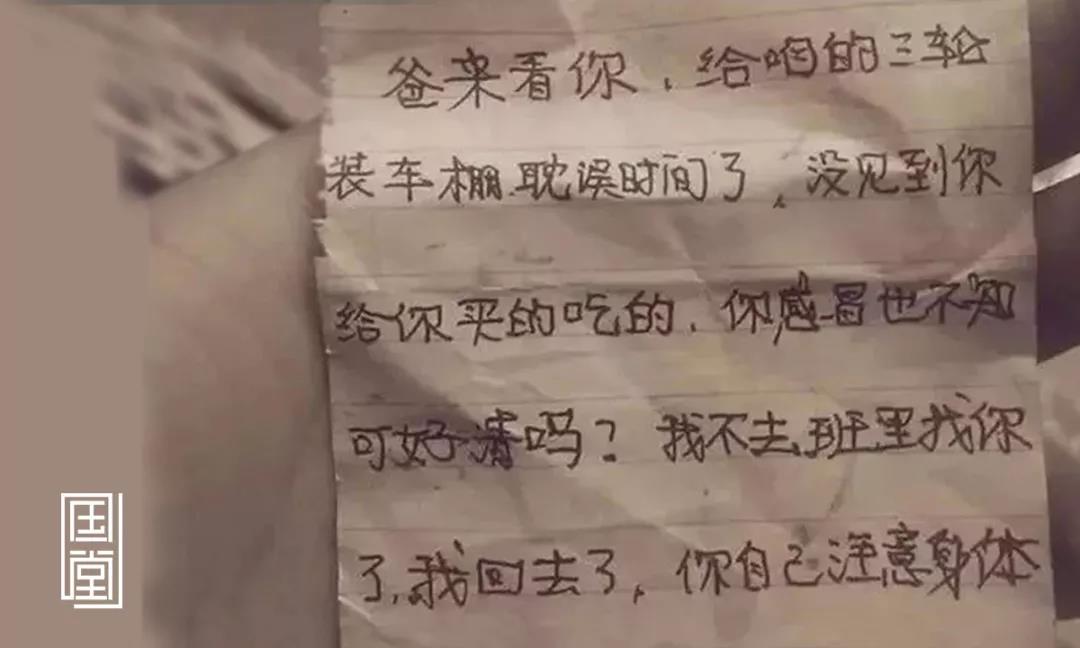 爸来看你,给咱的三轮
装车棚耽误时间了,没见到你
给你买的吃的,你感冒也不知
可好清吗?我不去班里找你
了,我回去了,你自己注意身体
国堂